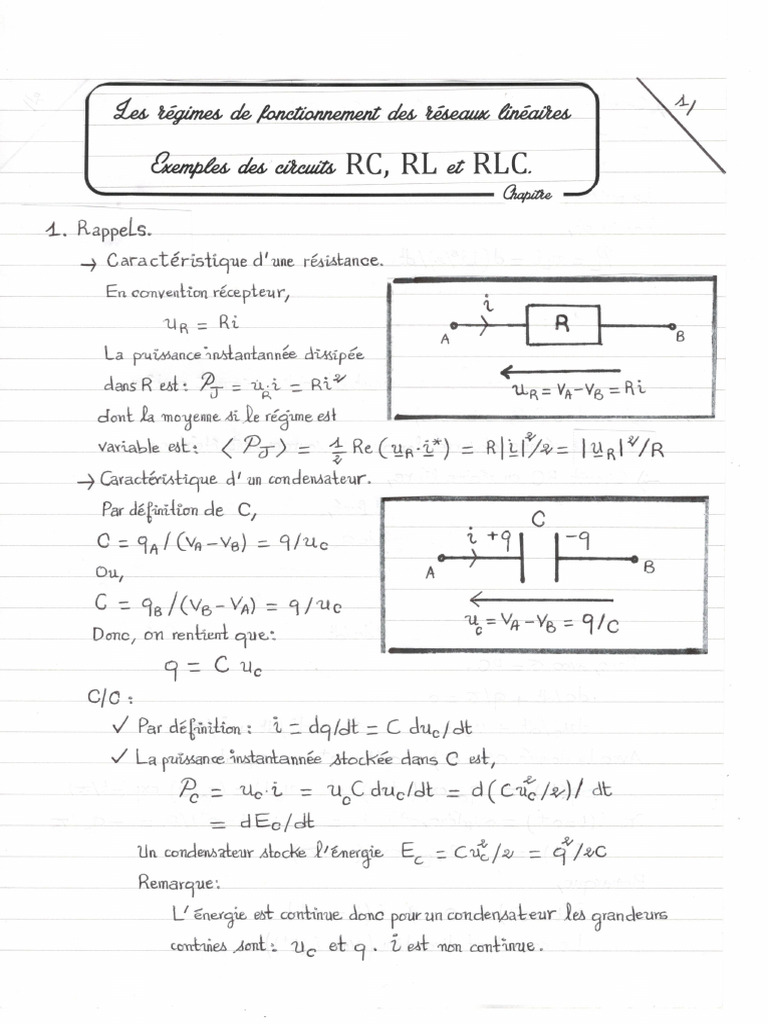 Les régimes de fonctionnement des réseaux linéaires
Exemples des circuits RC, RL et RLC.
Chapitre
1/
1. Rappels.
→ Caractéristique d'une résistance.
En convention récepteur,
u_R = Ri
La puissance instantannée dissipée
dans R est: P_J = u_R.i = Ri²
dont la moyenne si le régime est
variable est: ⟨P_J⟩ = 1/2 Re(u_R.i*) = R|i|²/2 = |u_R|²/R
i
R
A
B
u_R = V_A - V_B = Ri
→ Caractéristique d'un condensateur.
Par définition de C,
C = q_A/(V_A - V_B) = q/u_C
Ou,
C = q_B/(V_B - V_A) = q/u_C
Donc, on rentient que:
q = C u_C
C
i +q -q
A
B
u_C = V_A - V_B = q/C
C/C:
✓ Par définition: i = dq/dt = C du_C/dt
✓ La puissance instantannée stockée dans C est,
P_C = u_C.i = u_C C du_C/dt = d(Cu_C²/2)/dt
= dE_C/dt
Un condensateur stocke l'énergie E_C = Cu_C²/2 = q²/2C
Remarque:
L'énergie est continue donc pour un condensateur les grandeurs
contnies sont: u_C et q. i est non continue.